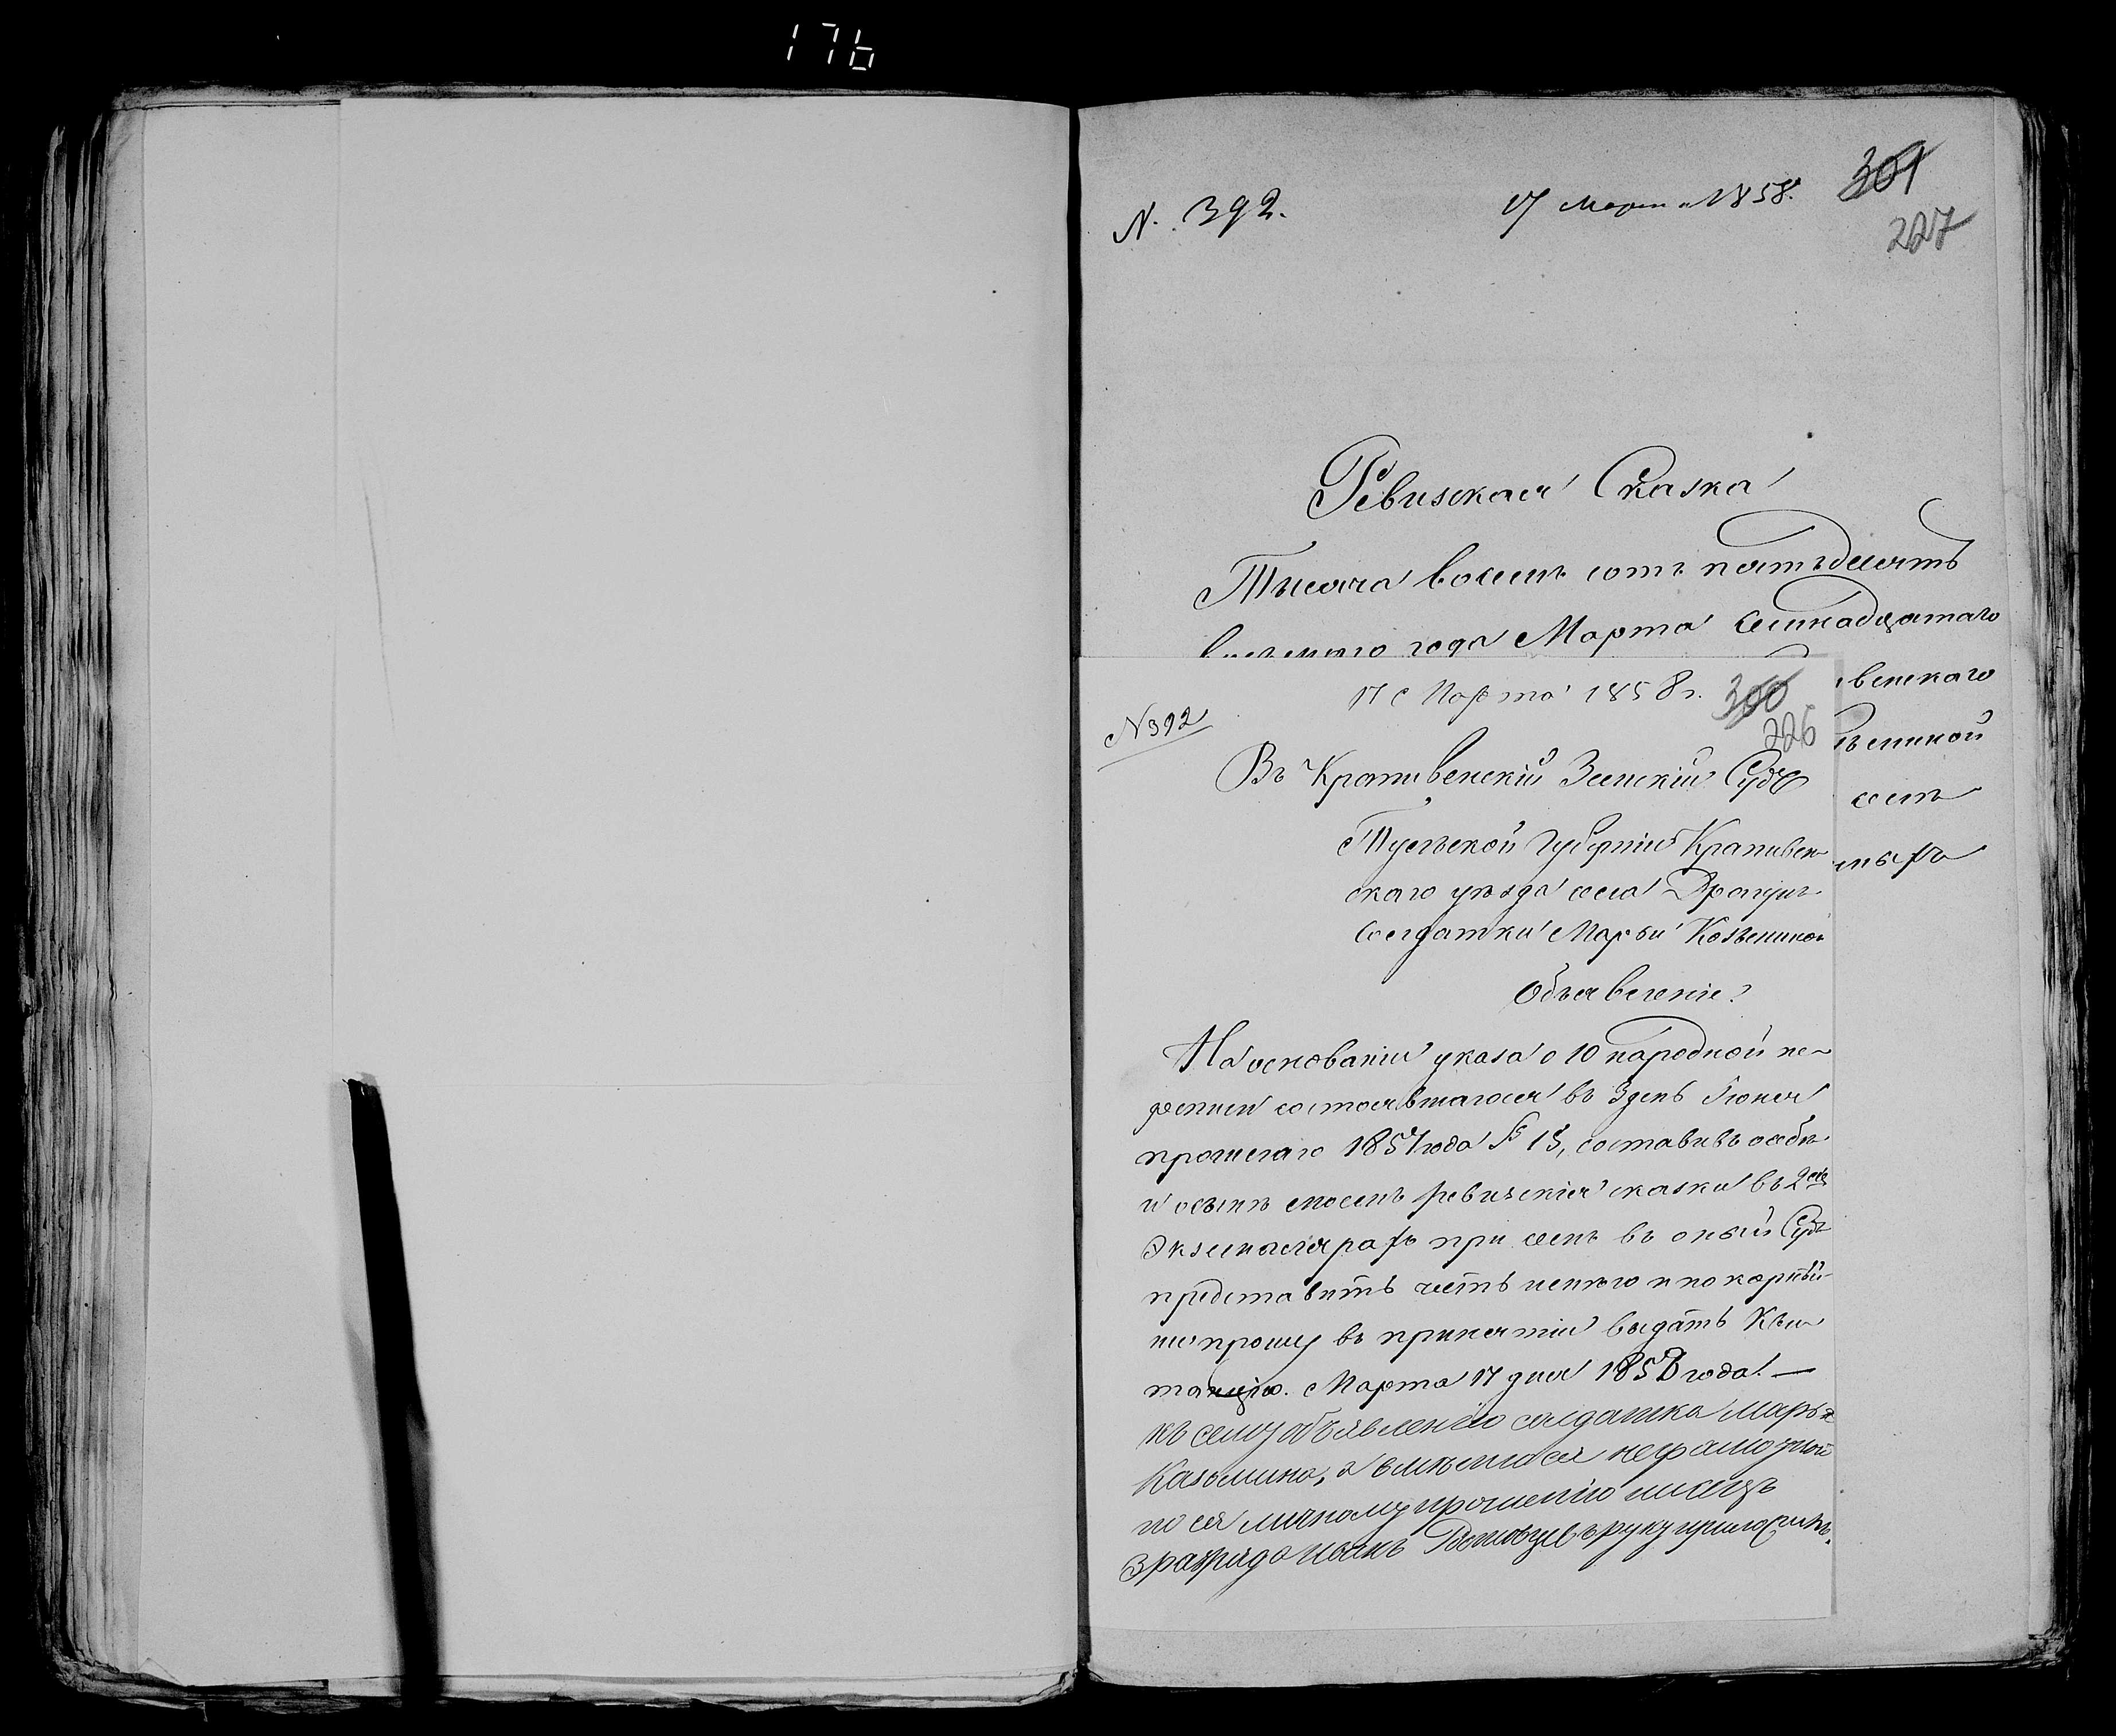 176
N. 392.
17 Марта 1858.
301
227
Ревизская Сказка
Тысяча восемь сотъ пятьдесятъ
восьмого года Марта Семнадцатаго
венскаго
ьминой
семъ
мѣръ
17 Марта 1858 г.
300
226
N 392
Въ Крапивенскій Земскій Судъ
Тульской Губерніи Крапивен
скаго уѣзда села
Солдатки Марьи Козьминой
Объявленіе
На основаніи указа о 10 народной пе-
реписи состоявшагося въ 3 день Іюня
прошлаго 1857 года § 13, составивъ о себѣ
и сынѣ моемъ ревизскія сказки въ 2хъ
Экземплярахъ при семъ въ оный Судъ
представить честь имѣю и покорнѣй-
ше прошу въ принятіи выдать Кви-
танцію. Марта 17 дня 1858 года. —
къ сему объявленію солдатка Марья
Казьмина, а вмѣсто ея неграмотной
по ея личному прошенію писецъ
3 разряда руку приложилъ.